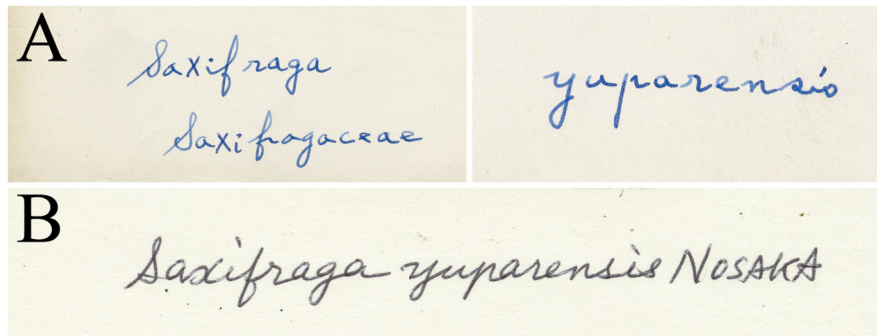 A
Saxifraga
Saxifragaceae
yuparensis
B
Saxifraga yuparensis NOSAKA